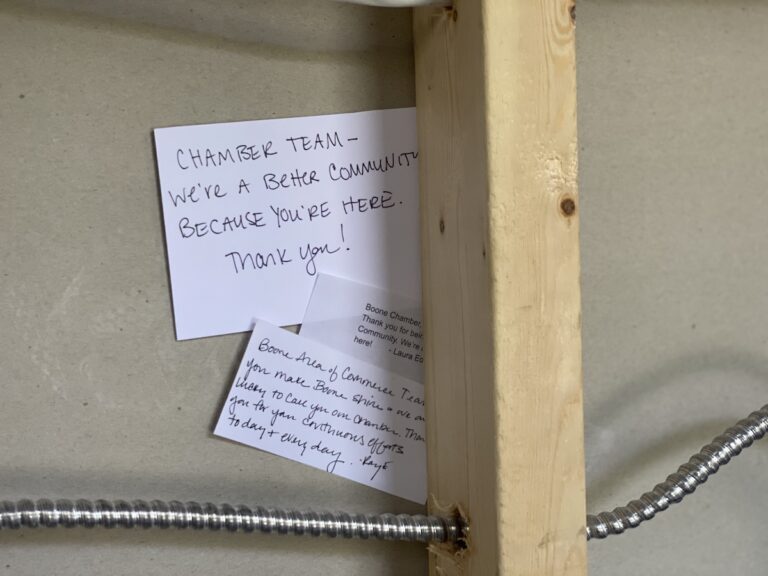 CHAMBER TEAM –
We're A Better COMMUNITY
BECAUSE YOU'RE HERE.
Thank you!
Boone Chamber,
Thank you for bein
Community. We're
here! - Laura Eo
Boone Area of Commerce Team
you make Boone shine + we ar
lucky to call you our chamber. Than
you for your continuous efforts
today + every day. - Kaye